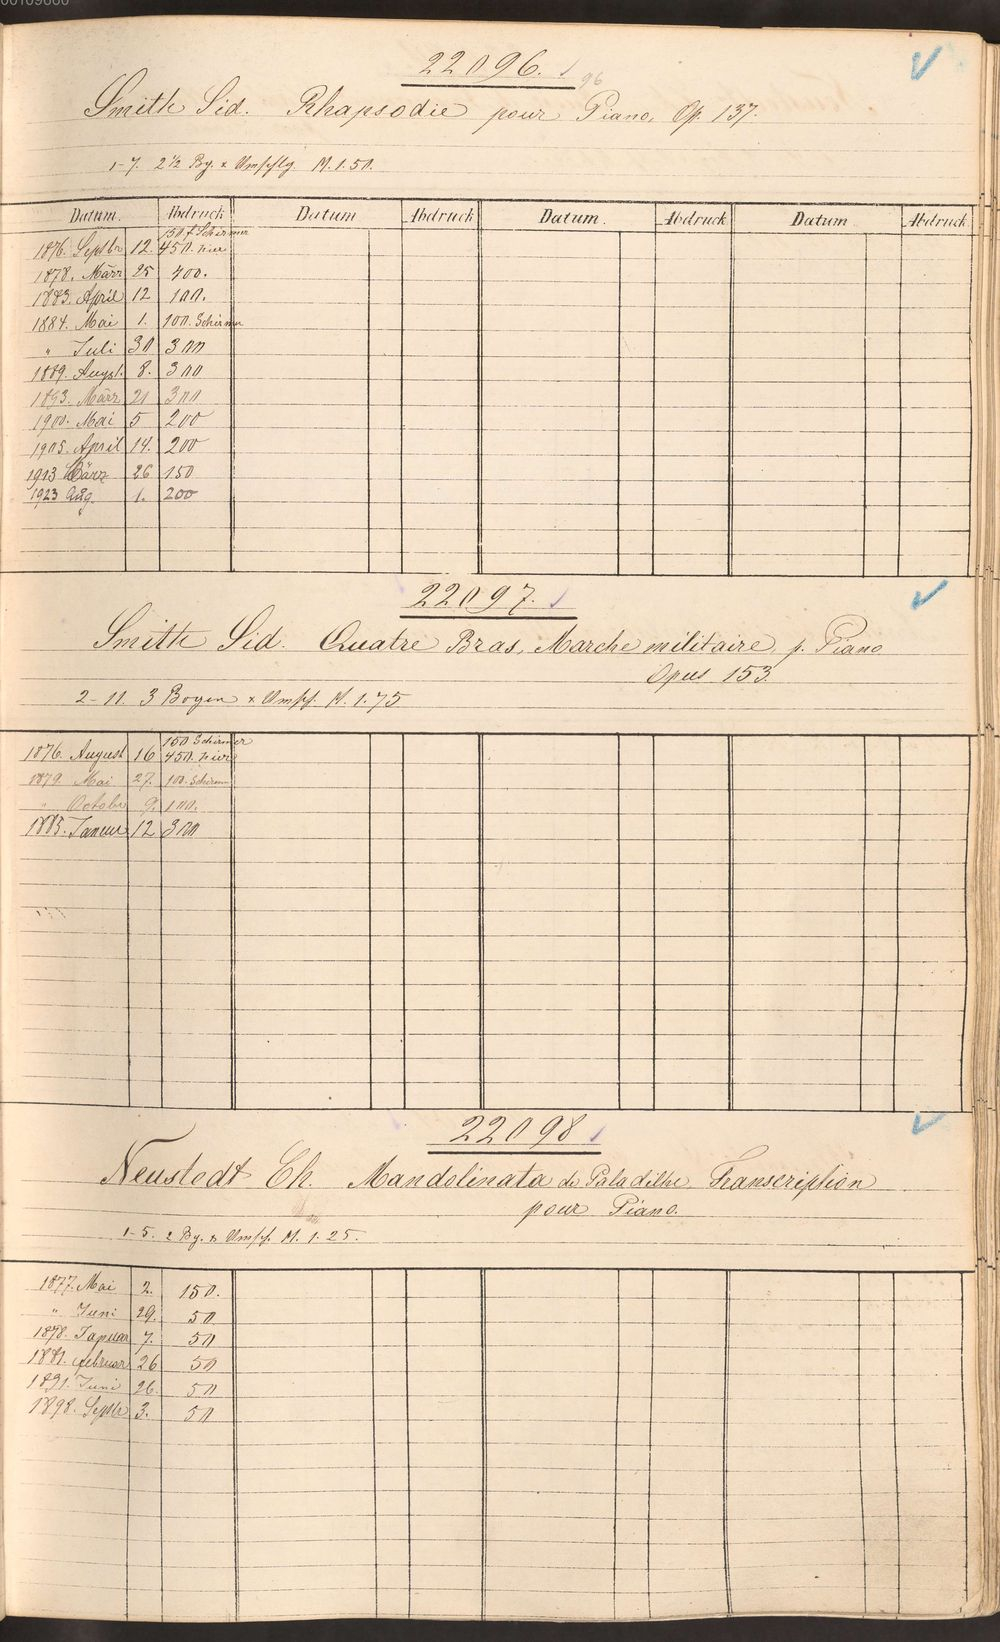 00109660
22096.
96
Smith Sid. Rhapsodie pour Piano, Op. 137.
1-7. 2½ Bg. & Umschlg. M. 1.50.
Datum. Abdruck Datum Abdruck Datum. Abdruck Datum Abdruck
150 f. Schirmer
1876. Septbr 12. 450. hier
1878. März 25 400.
1883. April 12 100.
1884. Mai 1. 100. Schirmer
" Juli 30 300
1889. August. 8. 300
1893. März 21 300
1900. Mai 5 200
1905. April 14. 200
1913 März 26 150
1923 Aug. 1. 200
22097.
Smith Sid. Quatre Bras, Marche militaire, p. Piano
Opus 153.
2-11. 3 Bogen & Umsch. M. 1.75
150 Schirmer
1876. August 16 450. hier
1879. Mai 27. 100. Schirm
" Octobr 9. 100.
1885. Januar 12 300
22098
Neustedt Ch. Mandolinata de Paladilhe, Transcription
pour Piano.
1-5. 2 Bg. & Umsch. M. 1.25.
1877. Mai 2. 150.
" Juni 29. 50
1878. Januar 7. 50
1881. Februar 26 50
1891. Juni 26. 50
1898. Septbr 3. 50